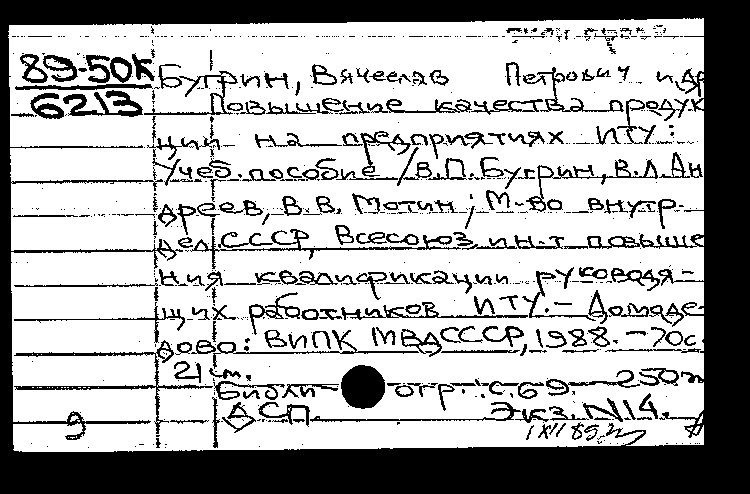 89-50К
6213
Бугрин, Вячеслав Петрович и др
Повышение качества продук
ции на предприятиях ИТУ:
Учеб. пособие / В.П. Бугрин, В.Л. Ан
дреев, В.В. Мотин; М-во внутр.
дел СССР, Всесоюз. ин-т повыше
ния квалификации руководя-
щих работников ИТУ. - Домоде-
дово: ВИПК МВД СССР, 1988. - 70с.
21 см.
Библи- огр.: с. 69. 250
ДСП. Экз. N14.
9